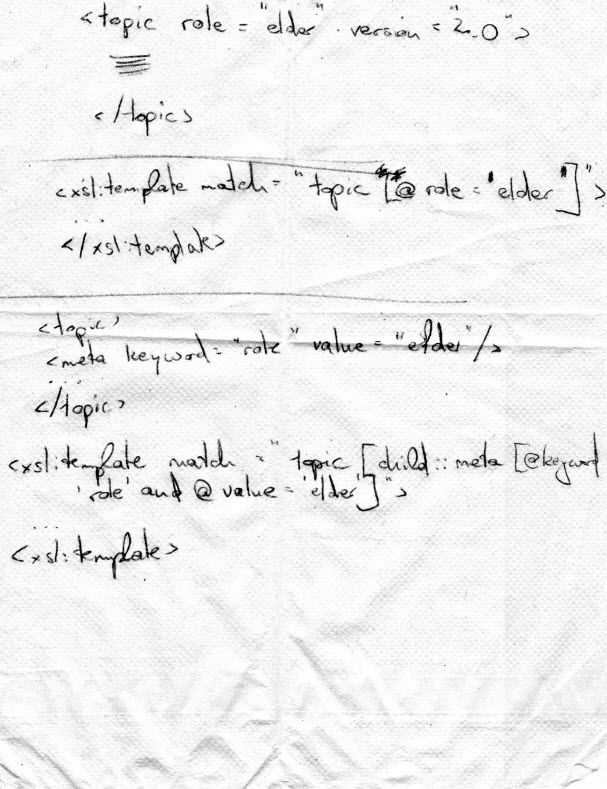 <topic role = "elder" version = "2.0">
</topic>
<xsl:template match = "topic [@ role = 'elder']">
...
</xsl:template>
<topic>
<meta keyword = "role" value = "elder" />
...
</topic>
<xsl:template match = "topic [child::meta [@keyword
'role' and @ value = 'elder']">
...
<xsl:template>